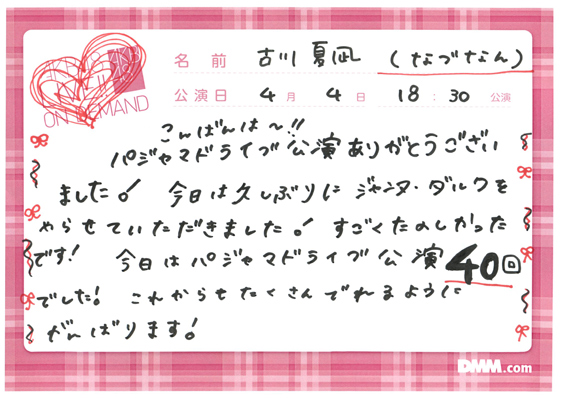 ON DEMAND
名前 古川夏凪 (なづなん)
公演日 4月 4日 18:30 公演
こんばんは〜!!
パジャマドライブ公演ありがとうござい
ました! 今日は久しぶりに ジャンヌ・ダルクを
やらせていただきました! すごくたのしかった
です! 今日はパジャマドライブ公演40回
でした! これからもたくさんでれるように
がんばります!
DMM.com